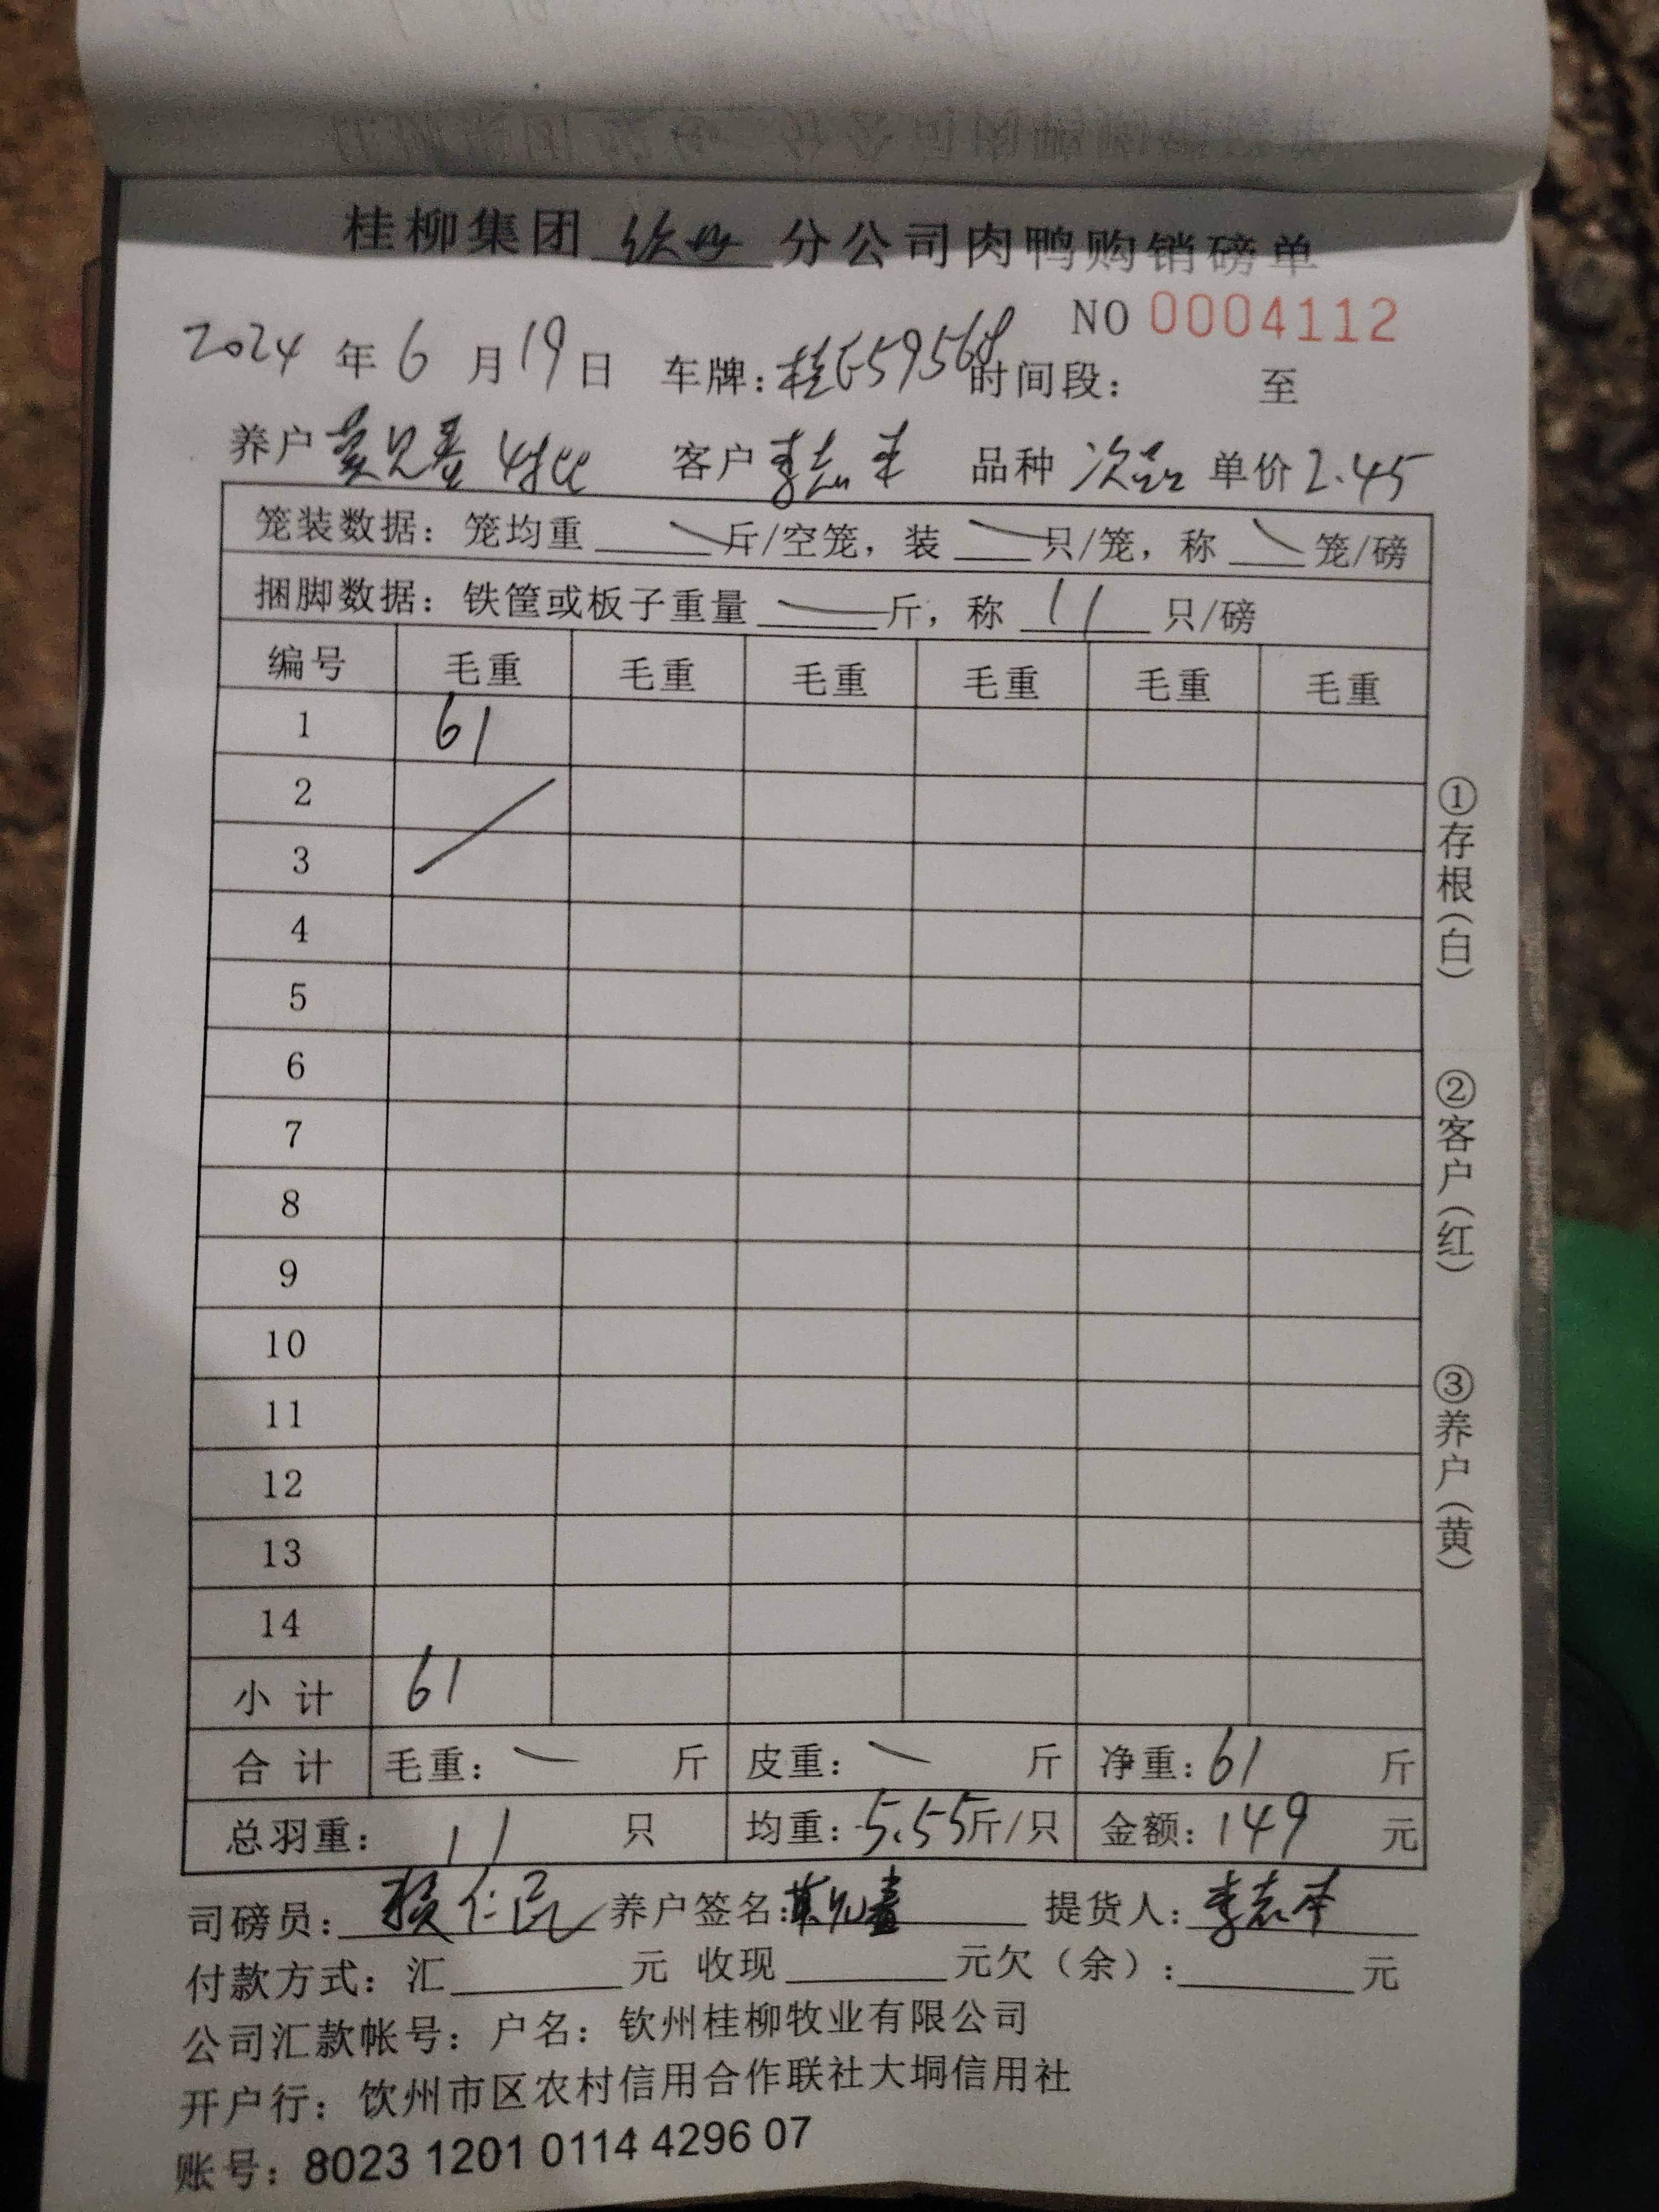 桂柳集团 钦州 分公司肉鸭购销磅单
NO 0004112
2024 年 6 月 19 日 车牌: 桂 时间段: 至
养户 客户 李志 品种 次品 单价 2.45
笼装数据: 笼均重 斤/空笼, 装 只/笼, 称 笼/磅
捆脚数据: 铁筐或板子重量 斤, 称 11 只/磅
编号 毛重 毛重 毛重 毛重 毛重 毛重
1 61
2
3
4
5
6
7
8
9
10
11
12
13
14
小计 61
合计 毛重: 斤 皮重: 斤 净重: 61 斤
总羽重: 11 只 均重: 5.55 斤/只 金额: 149 元
司磅员: 仁民 养户签名: 提货人: 李志
付款方式: 汇 元 收现 元欠(余): 元
公司汇款帐号: 户名: 钦州桂柳牧业有限公司
开户行: 钦州市区农村信用合作联社大垌信用社
账号: 8023 1201 0114 4296 07
①存根(白)
②客户(红)
③养户(黄)